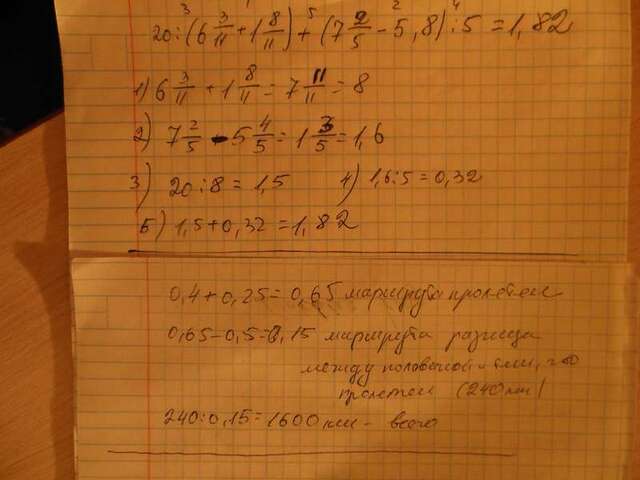 20:(6 3/11 + 1 8/11) + (7 2/5 - 5,8):5 = 1,82
1) 6 3/11 + 1 8/11 = 7 11/11 = 8
2) 7 2/5 - 5 4/5 = 1 3/5 = 1,6
3) 20:8 = 1,5 4) 1,6:5 = 0,32
5) 1,5 + 0,32 = 1,82
0,4 + 0,25 = 0,65 маршрута пролетел
0,65 - 0,5 = 0,15 маршрута разница
между половиной и тем, что
пролетел (240 км)
240:0,15 = 1600 км - всего